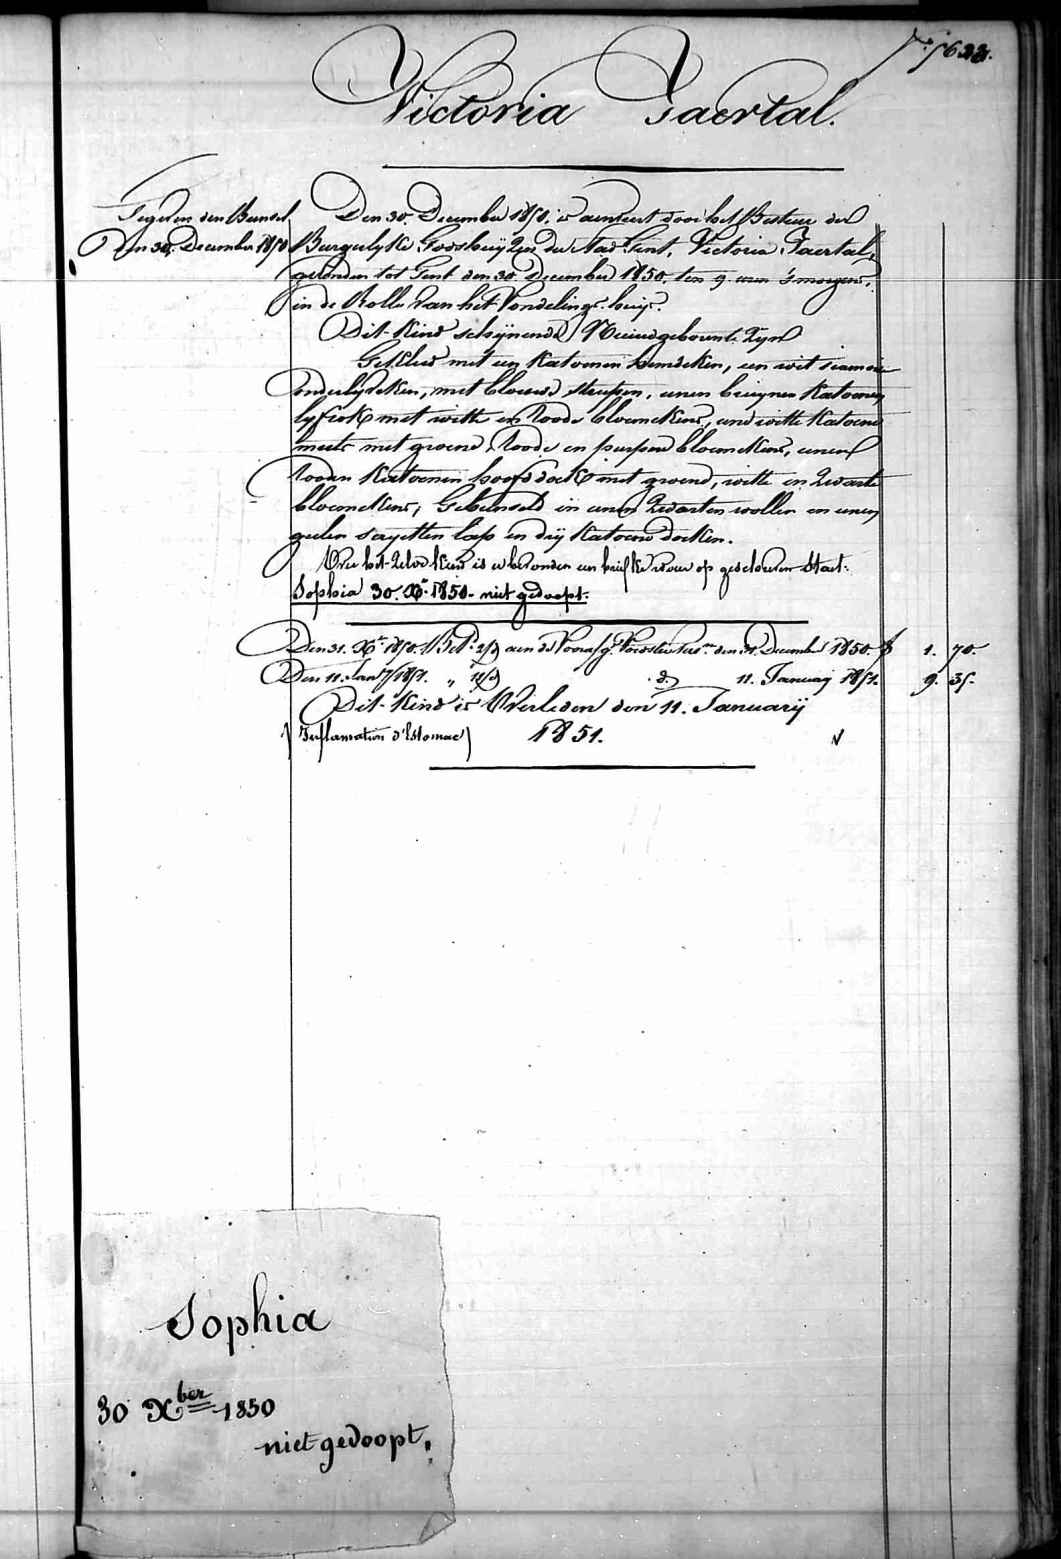 N.º 5623.
Victoria Jaertal.
Tegeven den Bundsel
Den 30. December 1850
Den 30. December 1850. is aenveert door het Bestuer der
Burgerlyke Godshuyzen der Stad Gent, Victoria Jaertal,
gevonden tot Gent den 30. December 1850. ten 9. uren 's morgens,
in de Rolle van het Vondelings-huys.
Dit Kind schijnende Nieuwgeboren te Zyn
Gekleed met een Katoenen hemdeken, een wit siamoise
onderlyveken, met blauwe streepen, eenen bruynen Katoenen
lyfrok met witte en Roode bloemekens, eene witte Katoene
muts met groene Roode en purpere bloemekens, eenen
Rooden Katoenen hoofddoek met groene, witte en Zwarte
bloemekens, Gebunseld in eenen Zwarten wollen en eenen
geelen sayetten lap en dry Katoene doeken.
Over het Zelve Kind is er bevonden een briefke waer op geschreven Staet:
Sophia 30. Xb. 1850. niet gedoopt.
Den 31. Xb. 1850. Bet. 2/3 aen de den 31. December 1850. f 1. 70.
Den 11. Jany 1851. " 12/3 d.º 11. January 1851. 9. 35.
Dit Kind is Overleden den 11. Januarij
(Inflamation d'Estomac) 1851.
Sophia
30 Xber 1850
niet gedoopt.